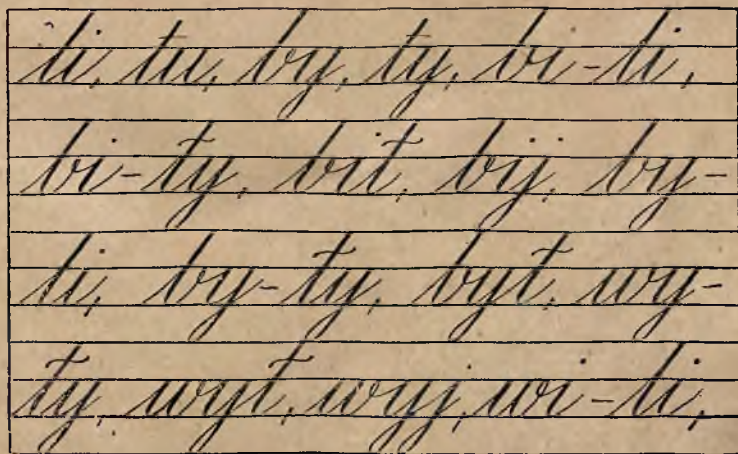 li, tu, by, ty, bi-li,
bi-ły, bił, bij, by-
li, by-ły, był, wy-
ły, wył, wyj, wi-li,